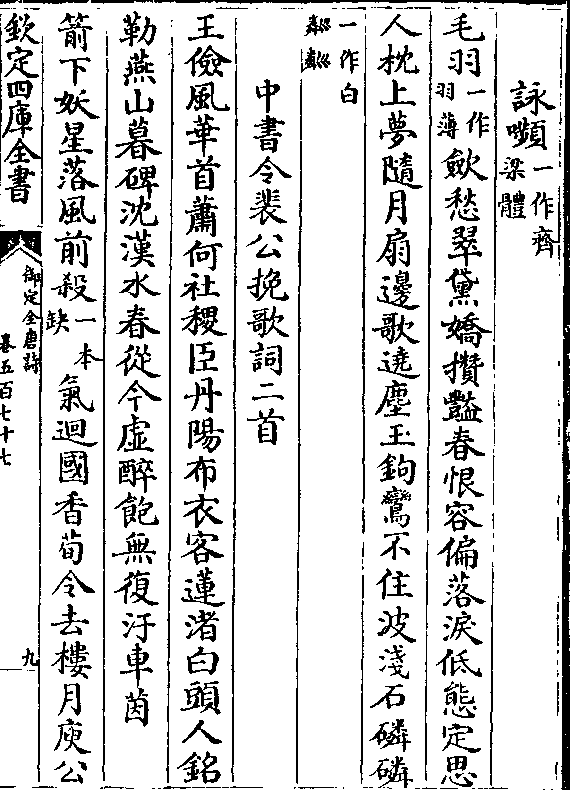 詠嚬一作齊梁體
毛羽一作羽薄斂愁翠黛嬌攢豔春恨容偏落淚低態定思
人枕上夢隨月扇邊歌遶塵玉鉤鸞不住波淺石磷磷
一作白粼粼
中書令裴公挽歌詞二首
王儉風華首蕭何社稷臣丹陽布衣客蓮渚白頭人銘
勒燕山暮碑沈漢水春從今虛醉飽無復汙車茵
箭下妖星落風前殺一本缺氣迴國香荀令去樓月庾公
欽定四庫全書
御定全唐詩
卷五百七十七
九